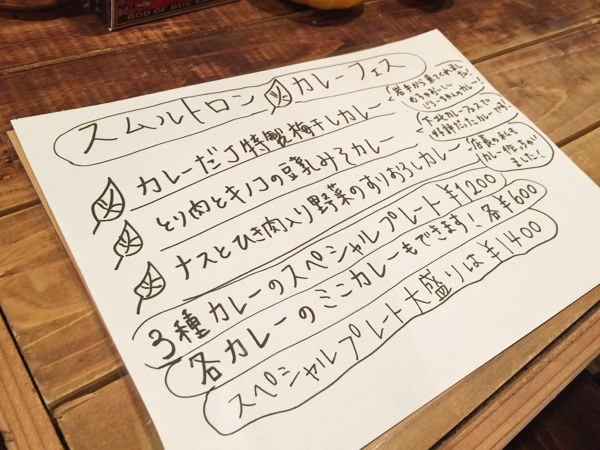 スムルトロン カレーフェス
カレーだJ特製梅干しカレー
岩手から来てくれました!
めちゃおいしい
じゅーちゃんカレー!
とり肉とキノコの豆乳みそカレー
下北カレーフェスで
好評だったカレーです!
ナスとひき肉入り野菜のすりおろしカレー
店長の私も
カレー作っちゃい
ました!
3種カレーのスペシャルプレート¥1200
各カレーのミニカレーもできます!各¥600
スペシャルプレート大盛りは¥1400